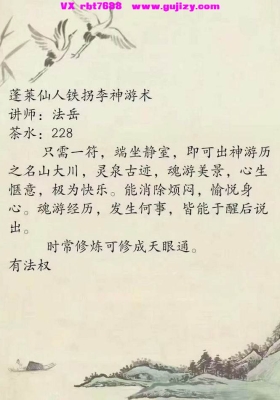 VX rbt7688 www.gujizy.com
蓬莱仙人铁拐李神游术
讲师：法岳
茶水：228
只需一符，端坐静室，即可出神游历
之名山大川，灵泉古迹，魂游美景，心生
惬意，极为快乐。能消除烦闷，愉悦身
心。魂游经历，发生何事，皆能于醒后说
出。
时常修炼可修成天眼通。
有法权